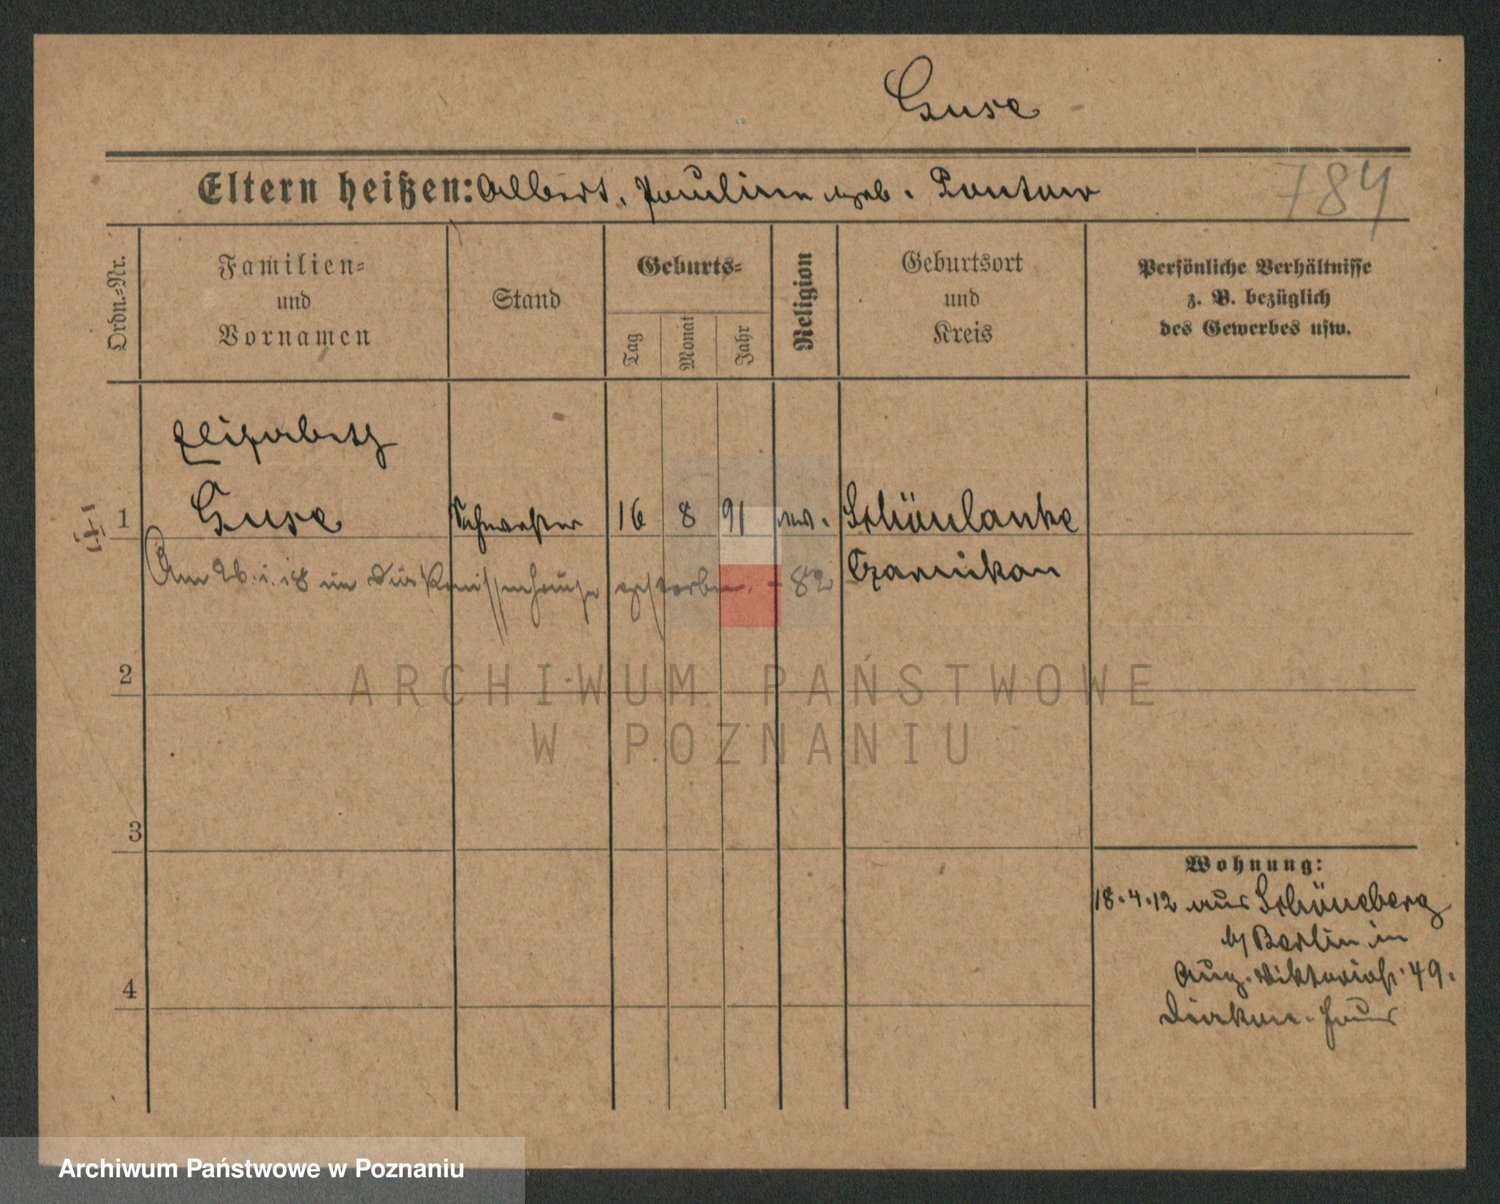 Guse
Eltern heißen: Albert, Pauline geb. Pontow
784
Ordn.-Nr.
Familien-
und
Vornamen
Stand
Geburts-
Tag
Monat
Jahr
Religion
Geburtsort
und
Kreis
Persönliche Verhältnisse
z. B. bezüglich
des Gewerbes usw.
Elisabeth
1 Guse Schwester 16 8 91 ev. Schönlanke
Czarnikau
Am 26.1.18 im Diakonissenhause gestorben. - 82
2
3
4
Wohnung:
18.4.12 aus Schöneberg
b/ Berlin in
Aug. Viktoriast. 49.
Diakon. Haus
ARCHIWUM PAŃSTWOWE
W POZNANIU
Archiwum Państwowe w Poznaniu